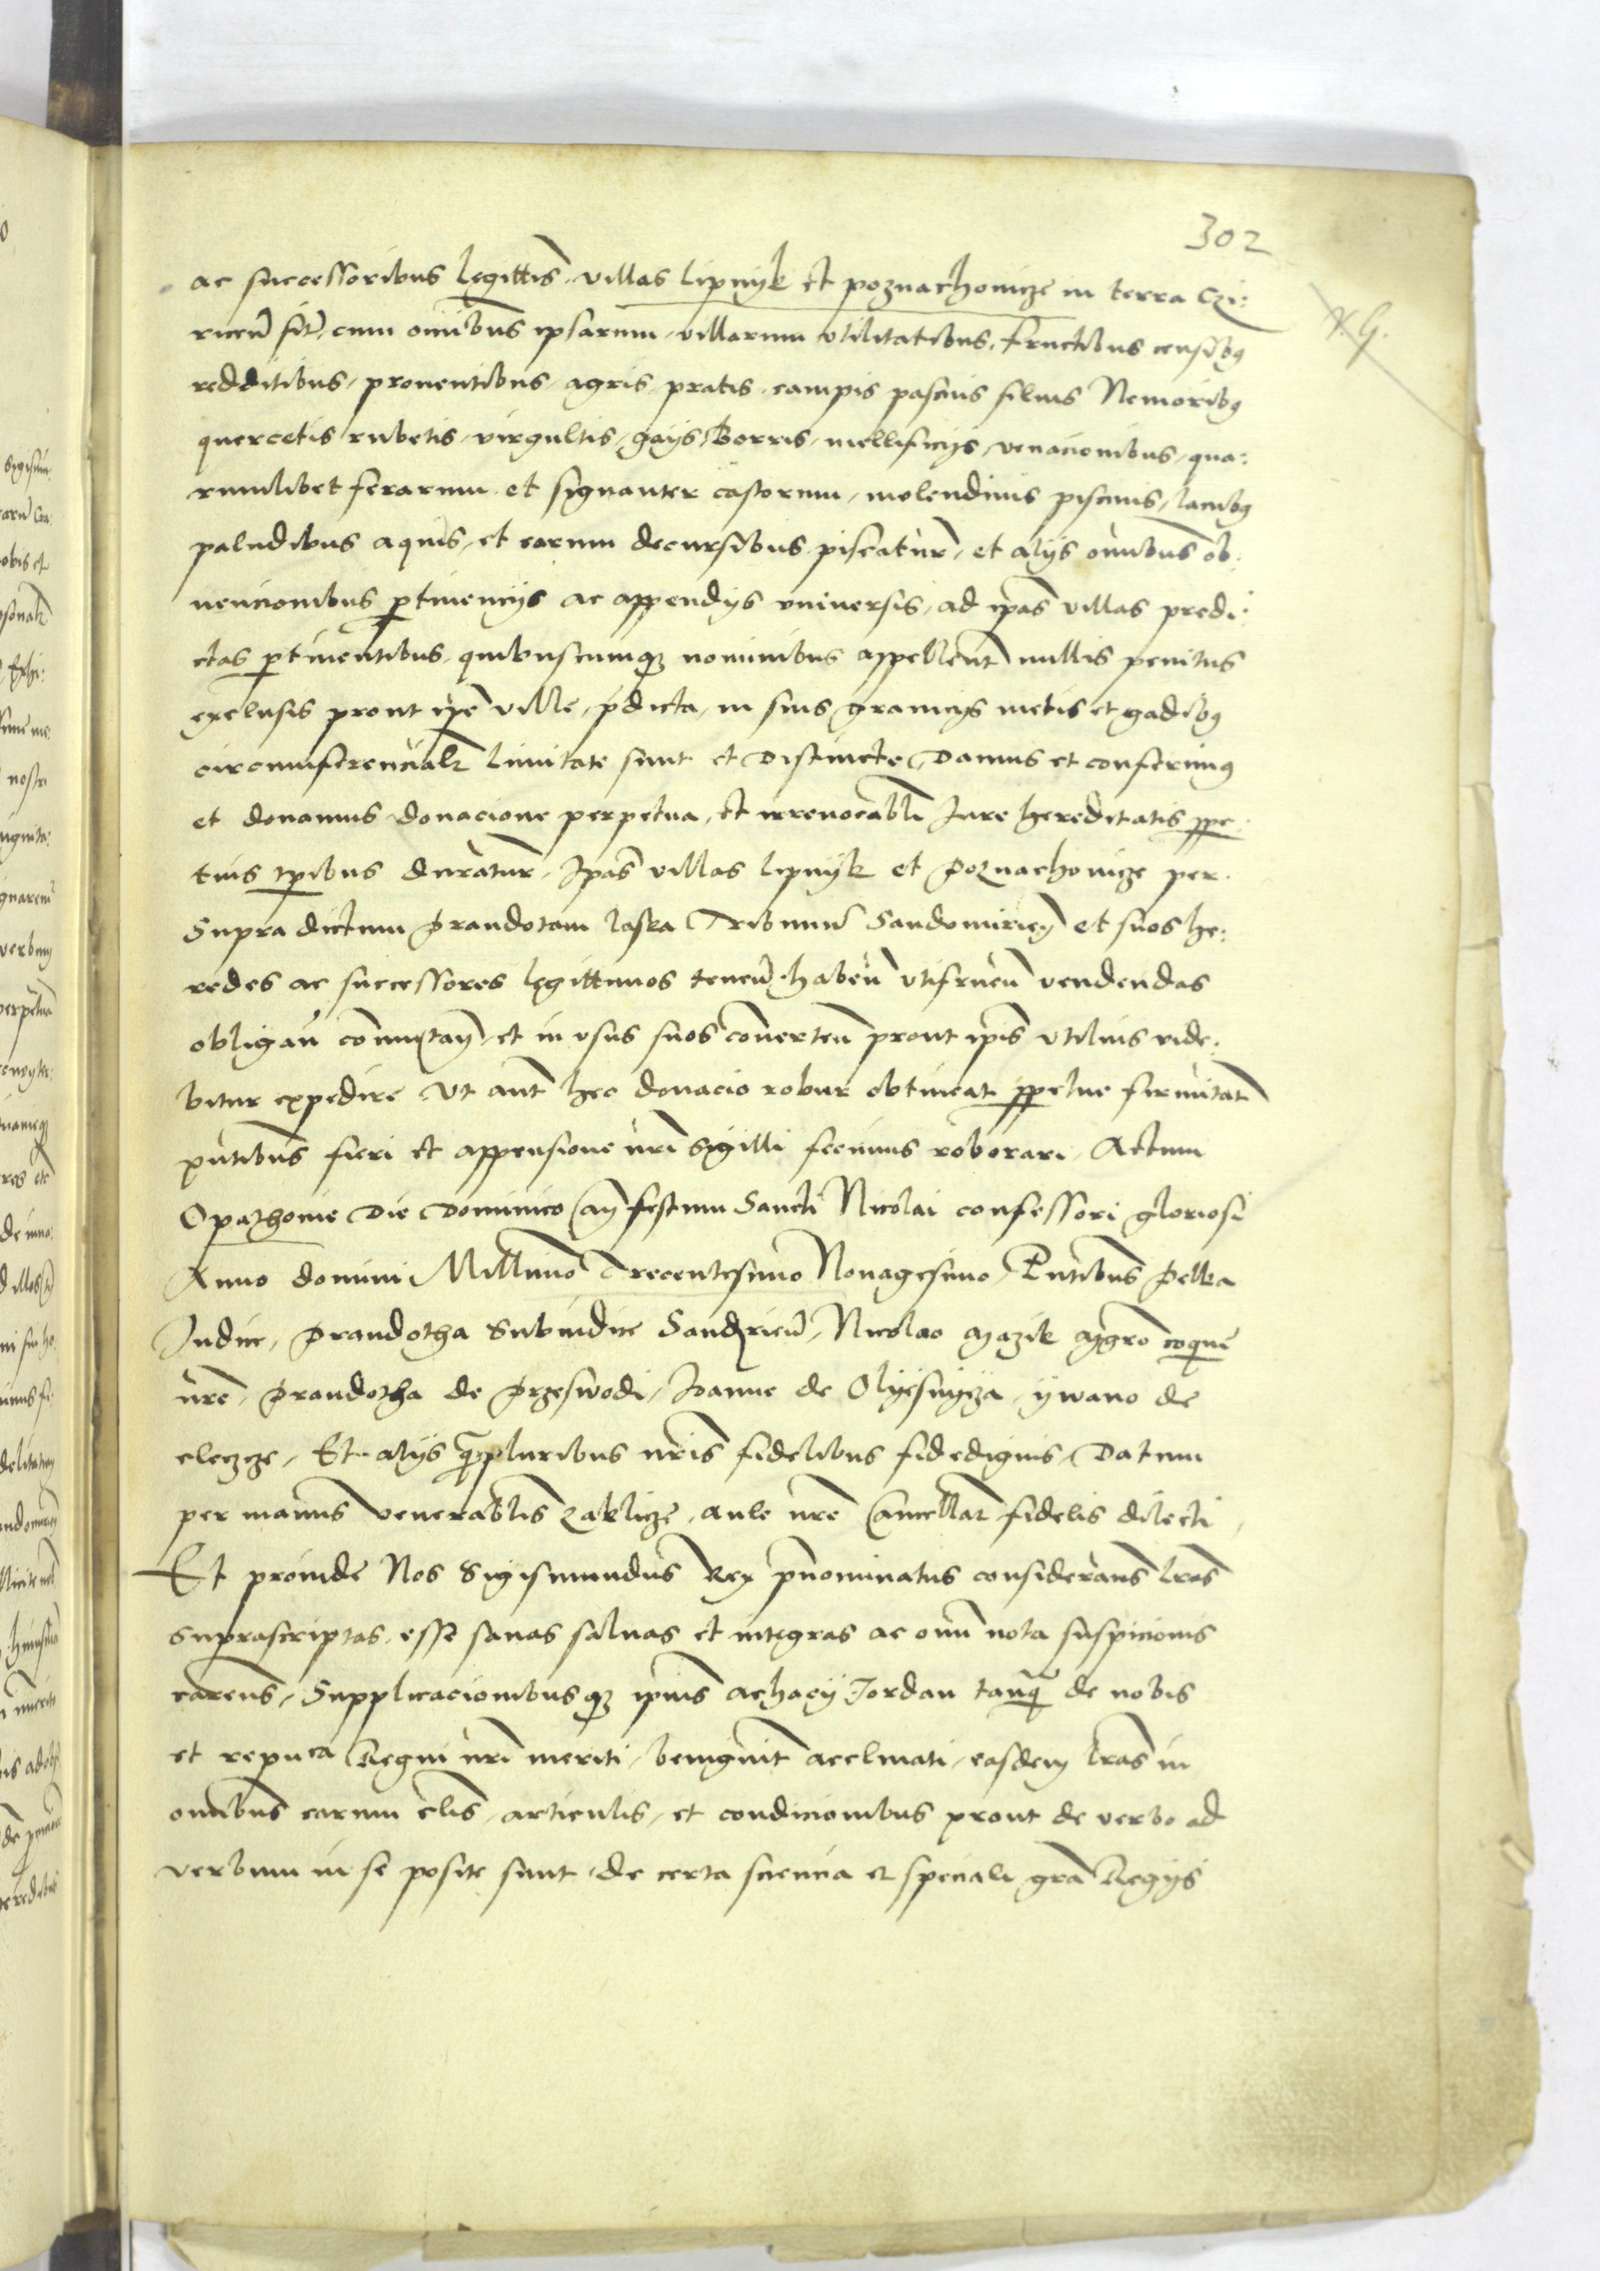 302
ac successoribus legittis villas Lipnyk et poznachowicze in terra Czi:
ricen̄ sit̄ cum om̄ibus ipsarum villarum utilitatibus fructibus censibq
redditibus proventibus agris pratis campis pascuis silvis Nemoribq
quercetis rubetis virgultis gays Borris mellificys venacionibus qua:
rumlibet ferarum et signanter castorum molendinis piscinis lacubq
paludibus aquis et earum decursibus piscatur̄ et alys om̄ibus ob:
vencionibus ptinencys ac appendys universis ad ip̄as villas predi:
ctas ptinentibus quibuscumqz nominibus appellent̄ nullis penitus
exclusis prout ip̄e ville p̄dicta in suis granicys metis et gadibq
circumferencialr̄ limitate sunt et distincte Damus et conferimq
et donamus donacione perpetua et irrevocabli Iure hereditatis ppe:
tuis tp̄ibus duratur̄ Ip̄as villas Lipnyk et Poznachowicze per
Supra dictum Prandotam laska Tribunū Sandomirien̄ et suos he:
redes ac successores legittimos tenen̄ haben̄ utifruen̄ vendendas
obligan̄ com̄utan̄ et in usus suos converten̄ prout ip̄is utilius vide:
bitur expedire Ut aut̄ hec donacio robur obtineat ppetue firmitat̄
pn̄tibus fieri et appensione nr̄i sigilli fecimus roborari Actum
Opathovie Die Dominico an̄ festum Sancti Nicolai confessori gloriosi
Anno domini Mill̄imo Trecentesimo Nonagesimo Pn̄tibus Pelka
Iudice Prandotha Subiudice Sand̄ricen̄ Nicolao Mazik mgr̄o coquine
nr̄e Prandotha de Przeswodi Ioanne de Olyesnycza ywano de
clecze Et alys q̄pluribus nr̄is fidelibus fidedignis Datum
per manus venerabl̄is Zaklicze aule nr̄e Cancellar̄ fidelis dilecti
Et proinde Nos Sigismundus Rex pn̄ominatus considerans lr̄as
suprascriptas esse sanas salvas et integras ac om̄i nota suspicionis
carens Supplicacionibusqz ip̄ius achacy Jordan tanq̄ de nobis
et repu:ca Regni nr̄i meriti benignit̄ acclinati easdem lr̄as in
om̄ibus earum cl̄is articulis et condicionibus prout de verbo ad
verbum in se posite sunt de certa sciencia et speciali gr̄a Regys